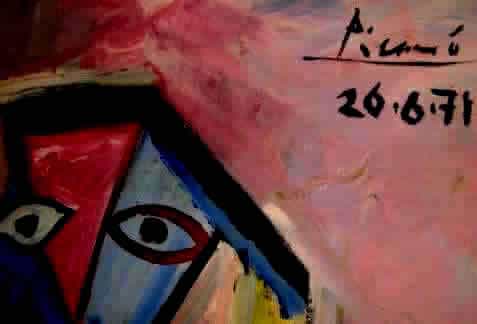 Picasso
26.6.71